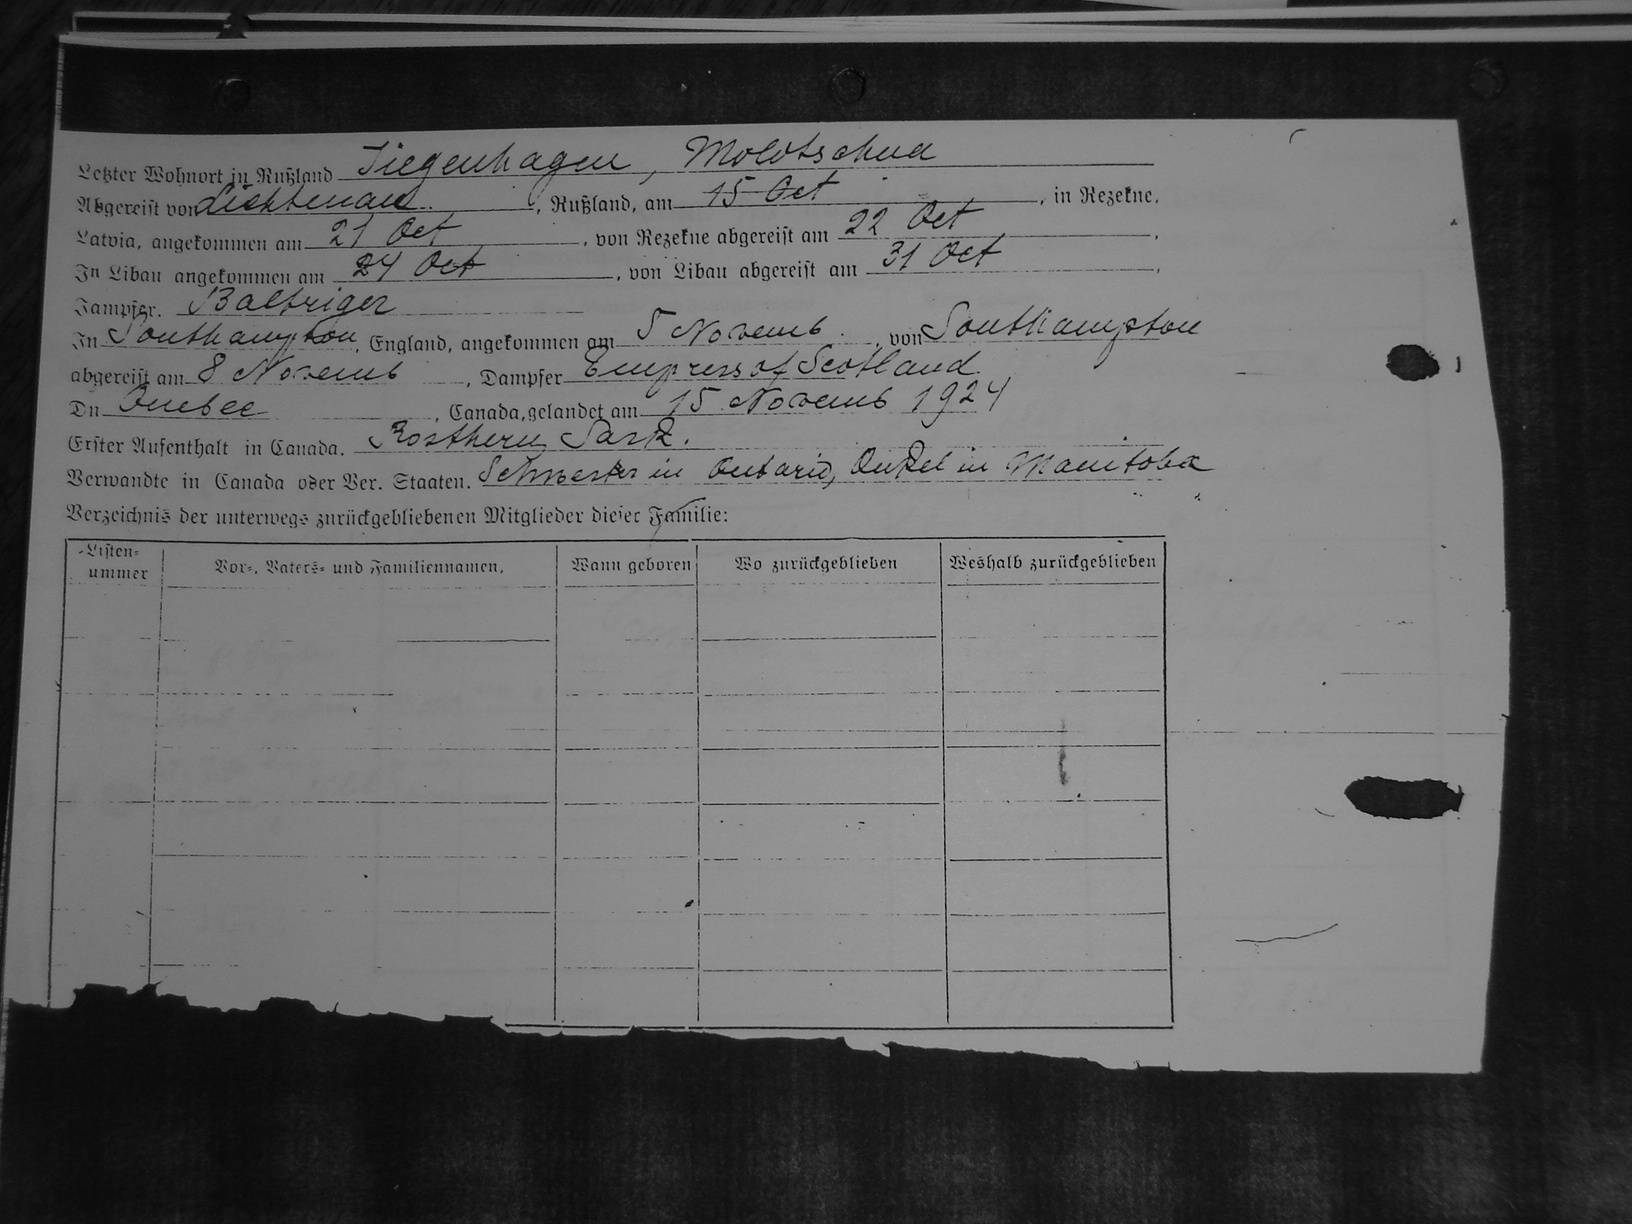 Letzter Wohnort in Rußland Tiegenhagen, Molotschna
Abgereist von Lichtenau, Rußland, am 15 Oct, in Rezekne,
Latvia, angekommen am 21 Oct, von Rezekne abgereist am 22 Oct,
In Libau angekommen am 24 Oct, von Libau abgereist am 31 Oct,
Dampfer. Baltriger
In Southampton, England, angekommen am 5 Novemb, von Southampton
abgereist am 8 Novemb, Dampfer Empress of Scotland
In Quebec, Canada, gelandet am 15 Novemb 1924
Erster Aufenthalt in Canada. Rosthern Sask.
Verwandte in Canada oder Ver. Staaten. Schwester in Ontario, Onkel in Manitoba
Verzeichnis der unterwegs zurückgebliebenen Mitglieder dieser Familie:
Listen=
ummer
Vor=, Vaters= und Familiennamen.
Wann geboren
Wo zurückgeblieben
Weshalb zurückgeblieben